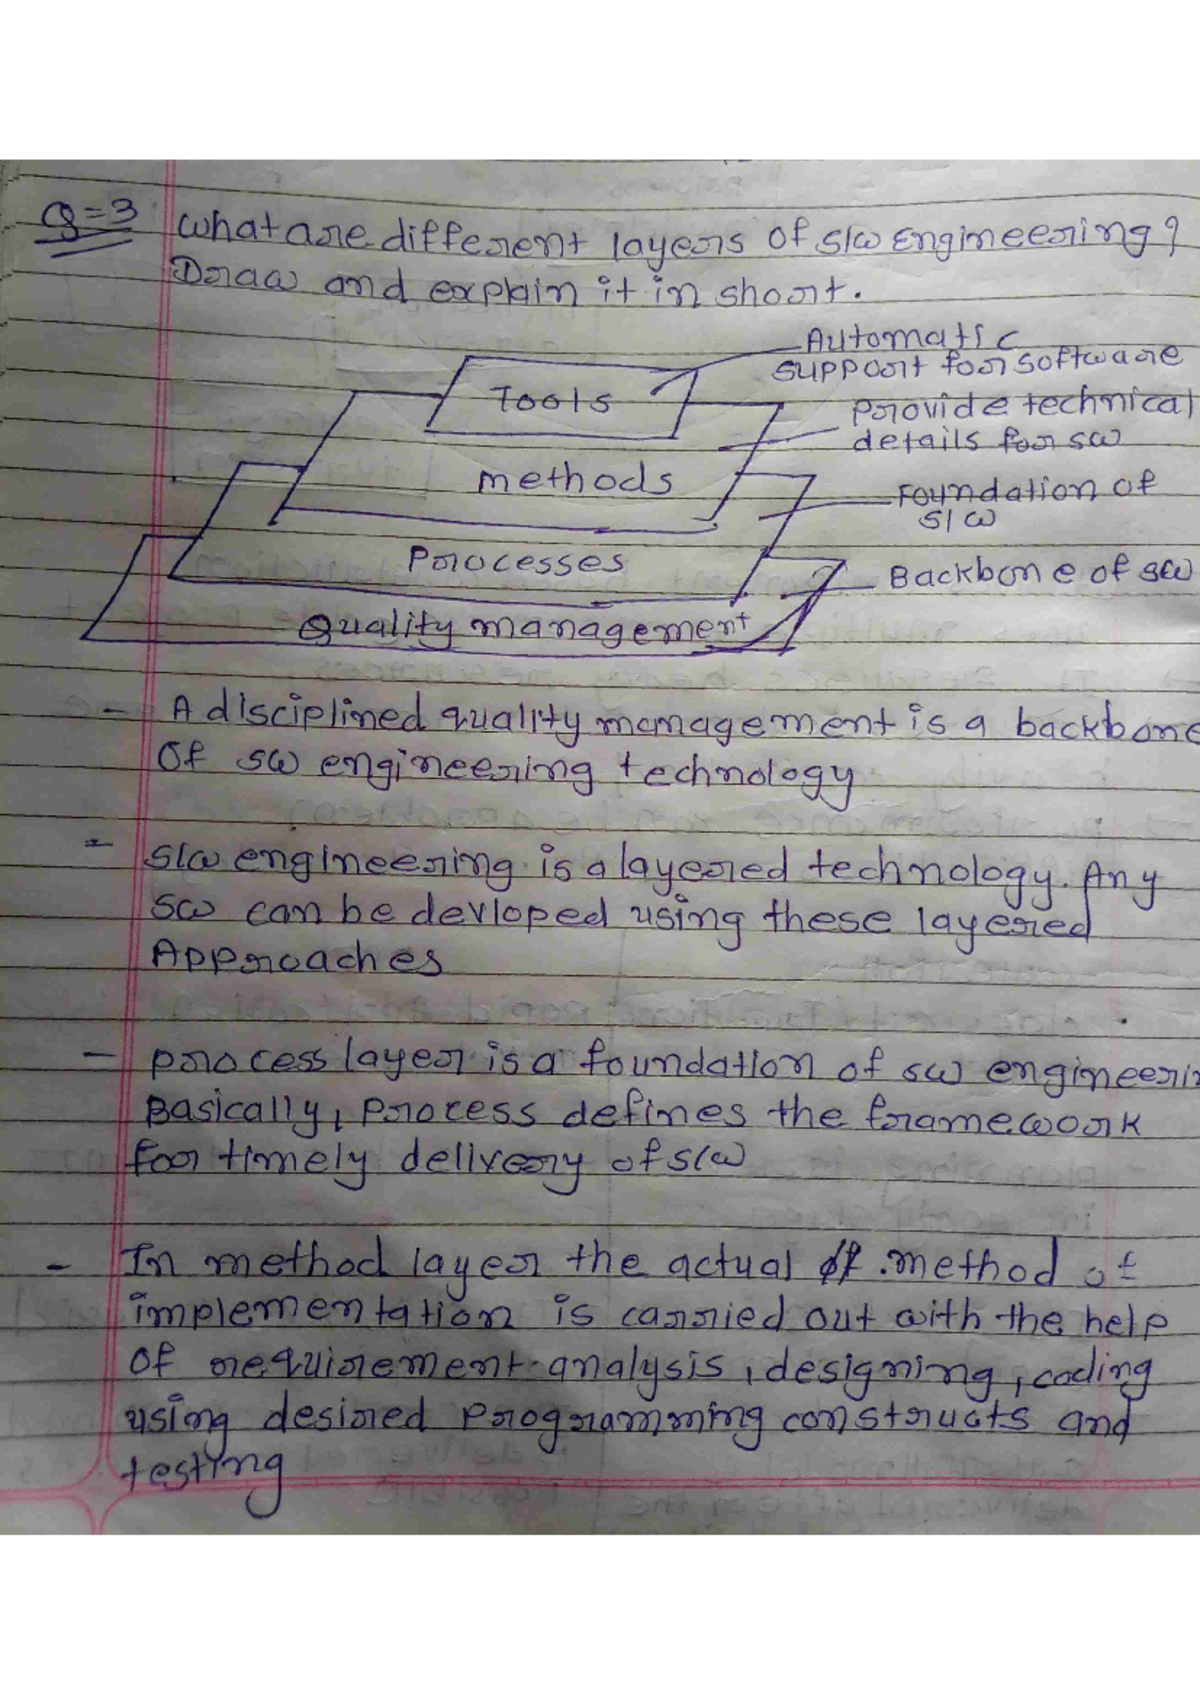 Q=3 What are different layers of s/w Engineering?
Draw and explain it in short.
Automatic
support for software
Tools
Provide technical
details for sw
methods
Foundation of
s/w
Processes
Backbone of sw
Quality management
- A disciplined quality management is a backbone
Of sw engineering technology
- s/w engineering is a layered technology. Any
sw can be devloped using these layered
Approaches
- process layer is a foundation of sw engineerin
Basically, process defines the framework
for timely delivery of s/w
- In method layer the actual method of
implementation is carried out with the help
of requirement analysis, designing, coding
using desired programming constructs and
testing